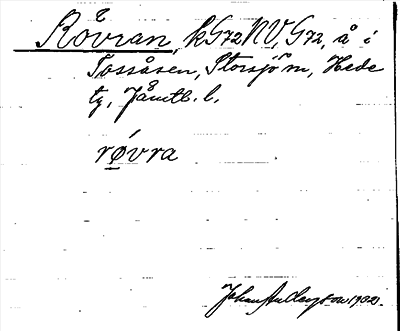 Råvran, kG72NV, G72, å i
Tossåsen, Storsjö m, Hede
tg, Jämtl. l.
røvra
Johan 1902.